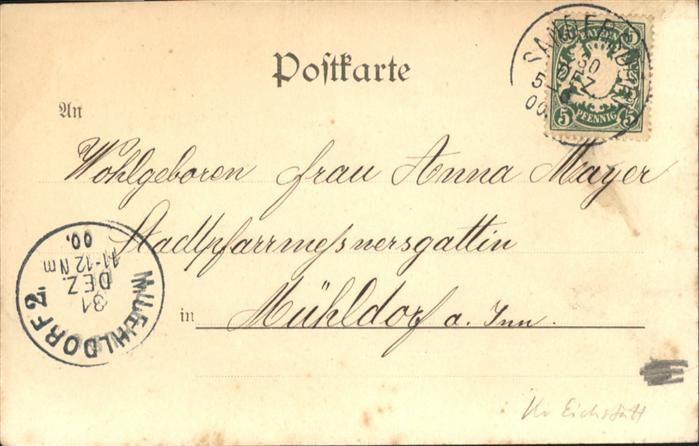 Postkarte
BAYERN
5 5
PFENNIG
30
DEZ
5-6
00
An
Wohlgeboren Frau Anna Mayer
Stadtpfarrmessnersgattin
in Mühldorf a. Inn.
MUEHLDORF 2.
31
DEZ.
11-12 Nm
00.
Kr Eichstätt